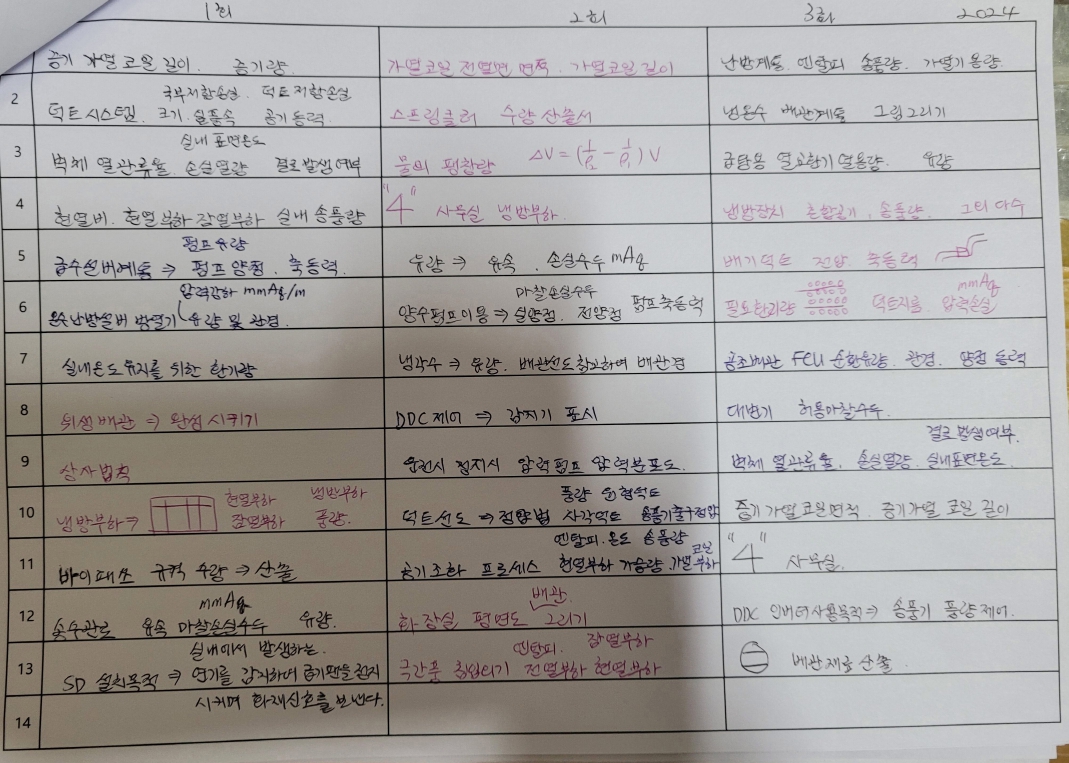 1회 2회 3회 2024
증기 가열코일 길이. 증기량.
가열코일 전열면 면적. 가열코일 길이
난방계통. 엔탈피 송풍량. 가열기 용량.
2
국부저항손실. 덕트저항손실
덕트시스템. 크기. 실풍속 공기동력.
스프링클러 수량 산출서
냉온수 배관계통 그림그리기
3
실내 표면온도
벽체 열관류율. 손실열량 결로발생여부
물의 팽창량 ΔV = (1/ρ₂ - 1/ρ₁) V
급탕용 열교환기 열용량. 유량
4
현열비. 현열부하 잠열부하 실내 송풍량
"4" 사무실 냉방부하.
냉방장치 혼합공기, 송풍량. 그외 다수
5
펌프유량
급수설비계통 ⇒ 펌프양정. 축동력.
유량 ⇒ 유속. 손실수두 mAq
배기덕트 전압. 축동력
6
압력강하 mmAq/m
온수난방설비 방열기 유량 및 관경.
마찰손실수두
양수펌프이용 ⇒ 실양정. 전양정 펌프축동력
mmAq
필요환기량 덕트지름. 압력손실
7
실내온도 유지를 위한 환기량
냉각수 ⇒ 유량. 배관선도참고하여 배관경
공조배관 FCU 순환유량. 관경. 양정 동력
8
위생배관 ⇒ 완성시키기
DDC 제어 ⇒ 감지기 표시
대변기 허용마찰수두.
9
상사법칙
운전시 정지시 압력펌프 압력분포도.
결로발생여부.
벽체 열관류율. 손실열량. 실내표면온도.
10
냉방부하⇒ 현열부하 냉방부하
잠열부하 풍량.
풍량 원형덕트
덕트선도 ⇒ 정압법 사각덕트 송풍기출구전압
증기가열코일면적. 증기가열 코일 길이
11
바이패스 규격 수량 ⇒ 산출
엔탈피. 온도 송풍량 코일
공기조화 프로세스 현열부하 가습량. 가열부하
"4" 사무실.
12
mmAq
옥수관로 유속 마찰손실수두 유량.
배관
화장실 평면도 그리기
DDC 인버터사용목적 ⇒ 송풍기 풍량제어.
13
실내에서 발생하는.
SD 설치목적 ⇒ 연기를 감지하여 공기팬을 정지
엔탈피. 잠열부하
극간풍 침입외기 전열부하 현열부하
배관재료 산출.
시키며 화재신호를 보낸다.
14